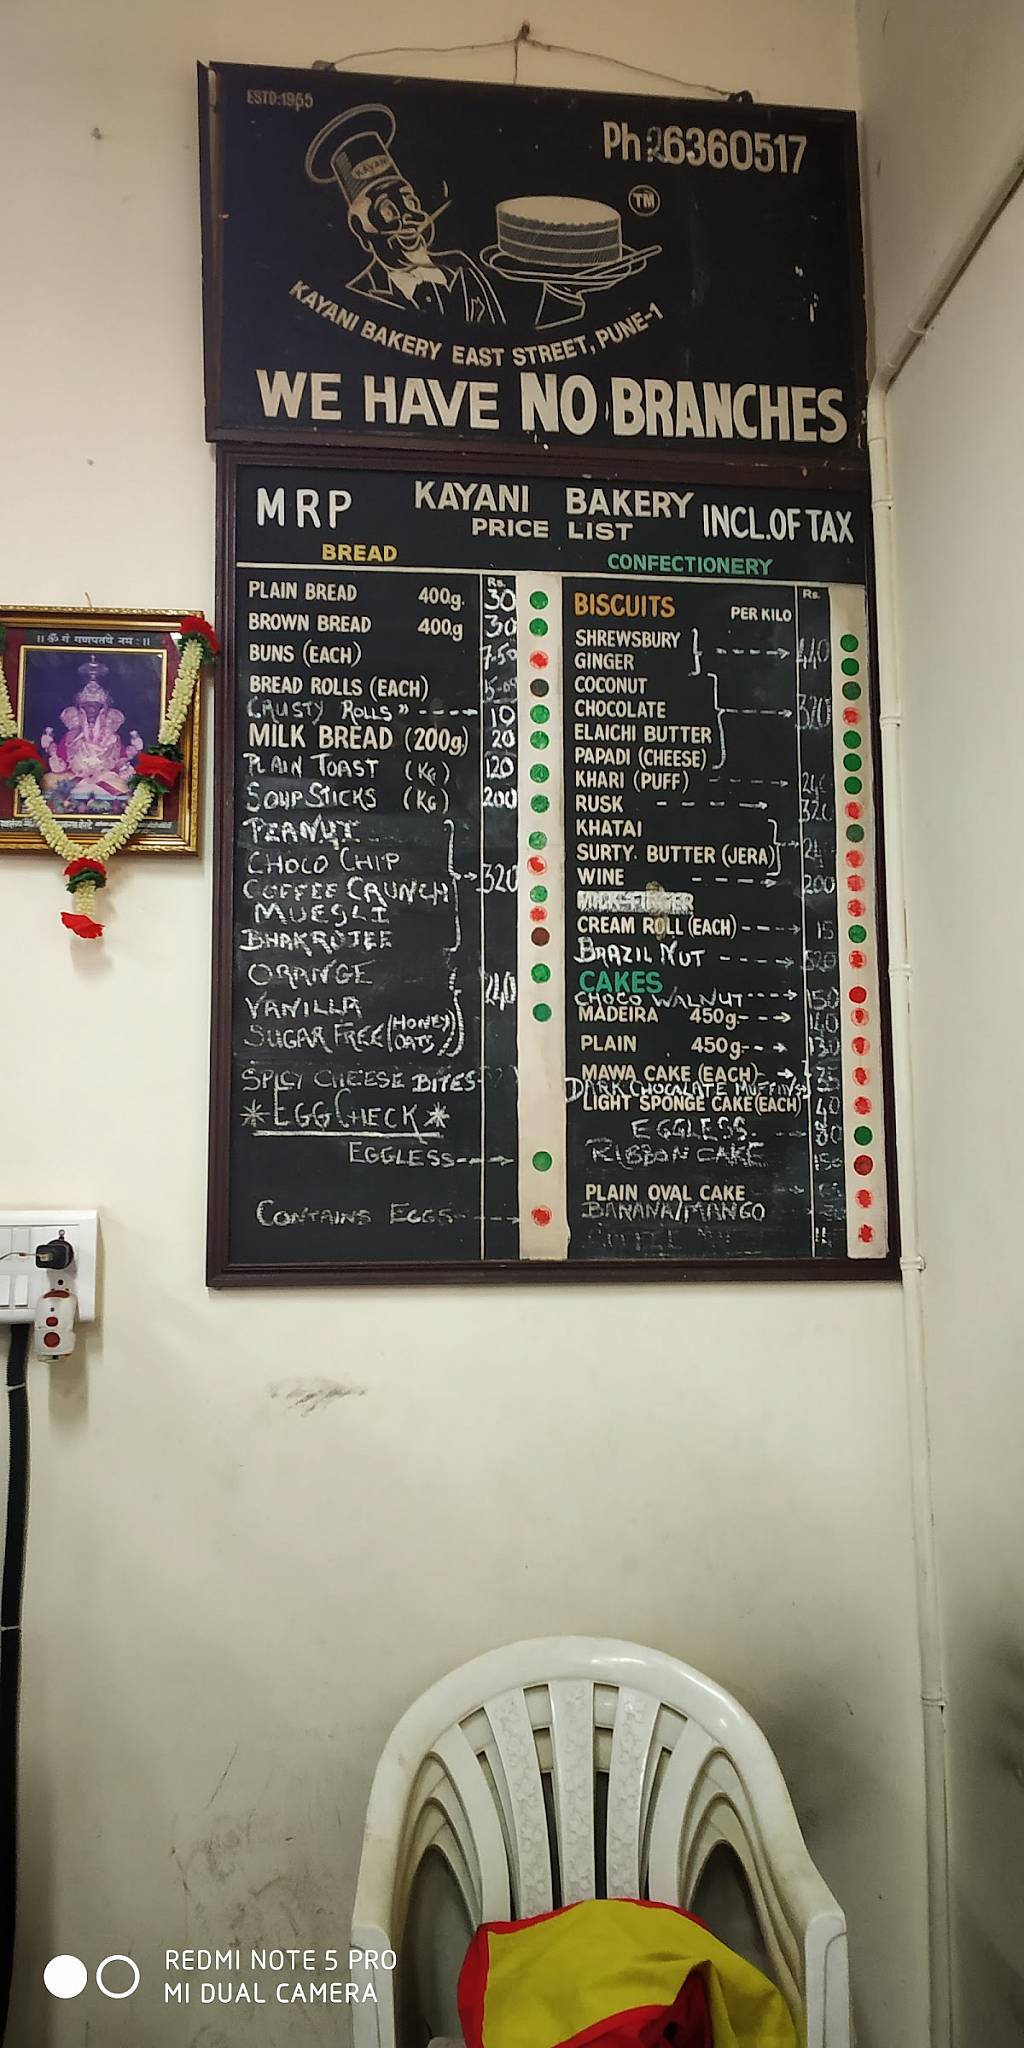 ESTD:1955
KAYANI
Ph:26360517
TM
KAYANI BAKERY EAST STREET, PUNE-1
WE HAVE NO BRANCHES
MRP KAYANI BAKERY INCL.OF TAX
PRICE LIST
BREAD
Rs.
PLAIN BREAD 400g. 30
BROWN BREAD 400g 30
BUNS (EACH) 7-50
BREAD ROLLS (EACH)
CRUSTY ROLLS " 10
MILK BREAD (200g) 20
PLAIN TOAST (KG) 120
SOUP STICKS (KG) 200
PEANUT
CHOCO CHIP
COFFEE CRUNCH 320
MUESLI
BHAKROTEE
ORANGE
VANILLA 240
SUGAR FREE (HONEY OATS)
SPICY CHEESE BITES
*EGG CHECK*
EGGLESS
CONTAINS EGGS
CONFECTIONERY
Rs.
BISCUITS PER KILO
SHREWSBURY
GINGER
COCONUT
CHOCOLATE 320
ELAICHI BUTTER
PAPADI (CHEESE)
KHARI (PUFF)
RUSK 320
KHATAI
SURTY BUTTER (JERA)
WINE 200
MILK FINGER
CREAM ROLL (EACH) 15
BRAZIL NUT 520
CAKES
CHOCO WALNUT 150
MADEIRA 450g. 140
PLAIN 450g 130
MAWA CAKE (EACH)
DARK CHOCOLATE MUFFINS
LIGHT SPONGE CAKE (EACH) 40
EGGLESS
RIBBON CAKE
PLAIN OVAL CAKE
BANANA/MANGO
|| ॐ गं गणपतये नमः ||
REDMI NOTE 5 PRO
MI DUAL CAMERA